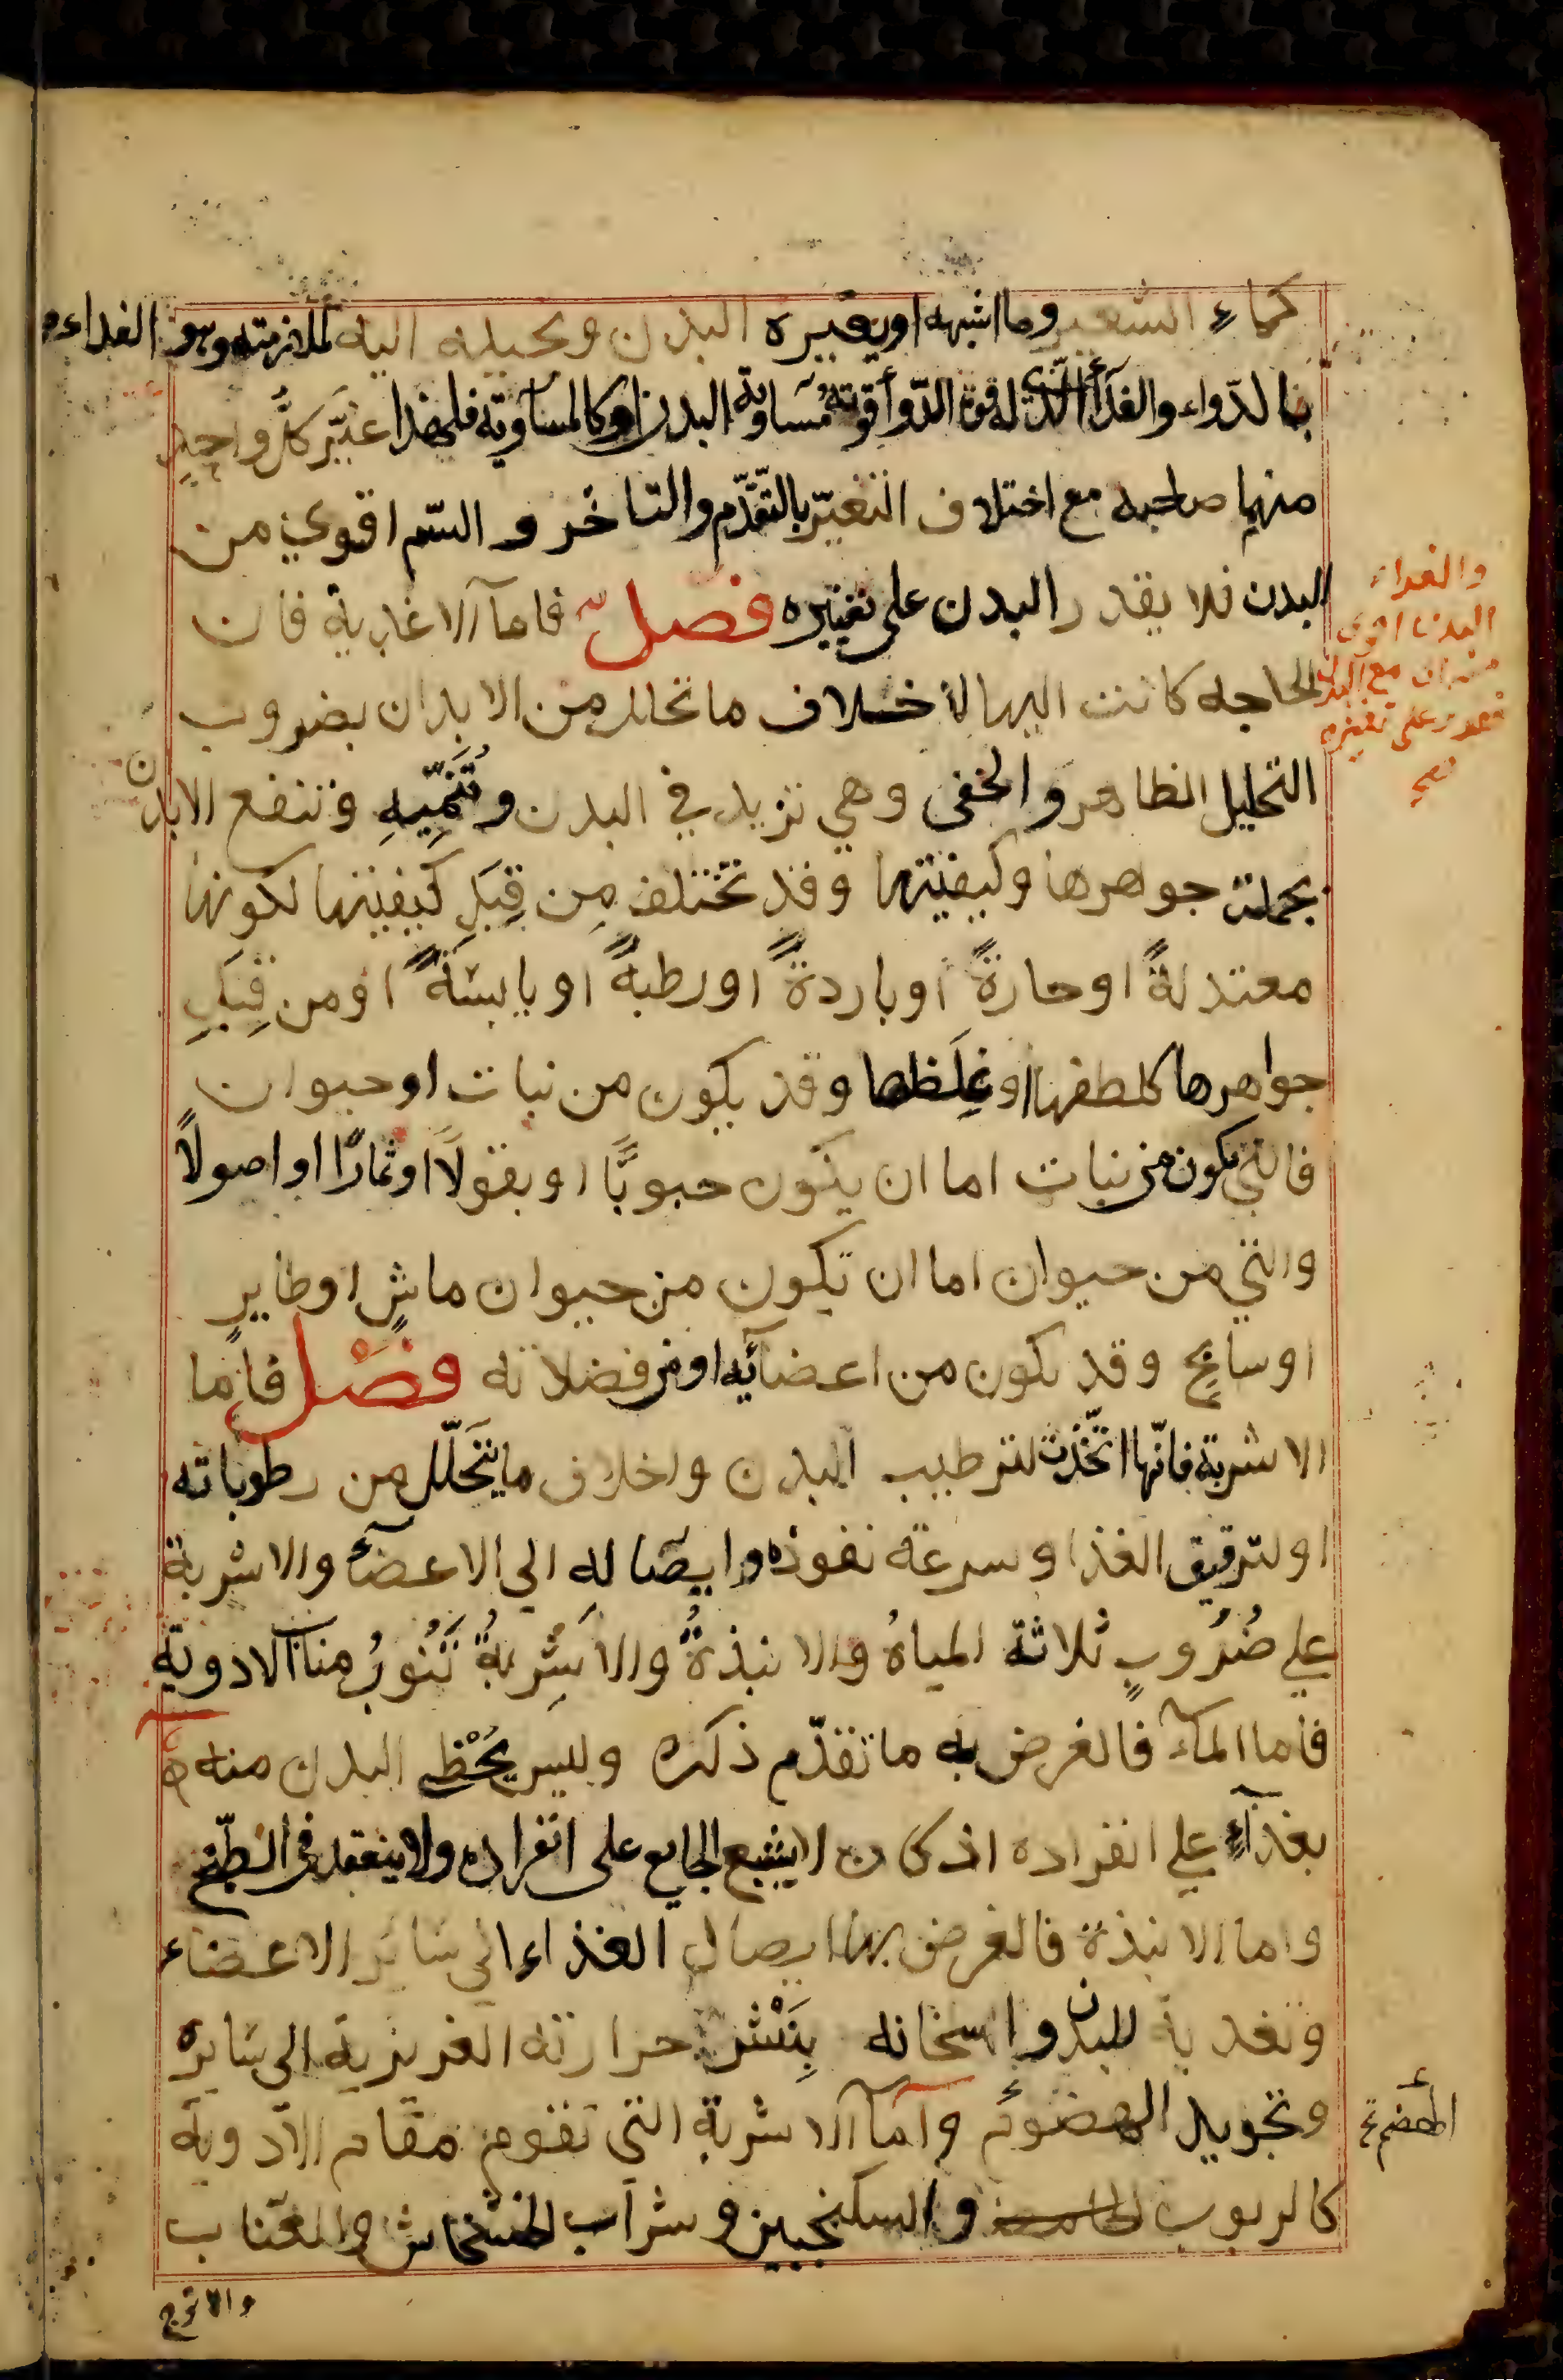 كماء الشعير وما اشبهه او يغيره البدن ويحيله اليه لملازمته وهو الغداء
فالدواء والغدآء الذي له قوة الدوآء قوته مساوية البدن او كالمساوية فلهذا غير كل واحد
منهما صاحبه مع اختلاف التغير بالتقدم والتاخر و السم اقوي من
البدن فلا يقدر البدن على تغييره فصل فامآ الاغدية فان
الحاجه كانت اليها لاخلاف ما تحلل من الابدان بضروب
التحليل الظاهر والخفى وهي تزيد في البدن وتنميه وتنفع الابدن
بجملة جواهرها وكيفيتها وقد تختلف من قبل كيفيتها لكونها
معتدلة او حارة او باردة او رطبة او يابسة او من قبل
جواهرها كلطفها او غلظها وقد يكون من نبات او حيوان
فالتي تكون من نبات اما ان يكون حبوبًا او بقولاً او ثمارًا او اصولاً
والتي من حيوان اما ان تكون من حيوان ماشٍ او طاير
او سابح وقد يكون من اعضآئه او من فضلاته فصل فاما
الاشربة فانها اتخذت لترطيب البدن واخلاف ما يتحلل من رطوباته
او لترقيق الغذا وسرعة نفوذه وايصاله الي الاعضآء والاشربة
علي ضروب ثلاثة المياه والانبذة والاشربة تنوب مناب الادوية
فاما المآء فالغرض به ما تقدم ذكره وليس يحظي البدن منه
بغذآء علي انفراده اذ كان لا يشبع الجايع على انفراده ولا ينعقد في الطبخ
واما الانبذة فالغرض بها ايصال الغذاء الي سائر الاعضاء
وتغدية للبدن واسخانه بنشر حرارته الغريزية الى سايره
وتجويد الهضوم وآمآ الاشربة التى تقوم مقام الادوية
كالربوب والسكنجبين وشراب الخشخاش والعناب
والاترج
والغداء
البدن اقوى
منه مع البدن
على تغييره
صح
الهضم